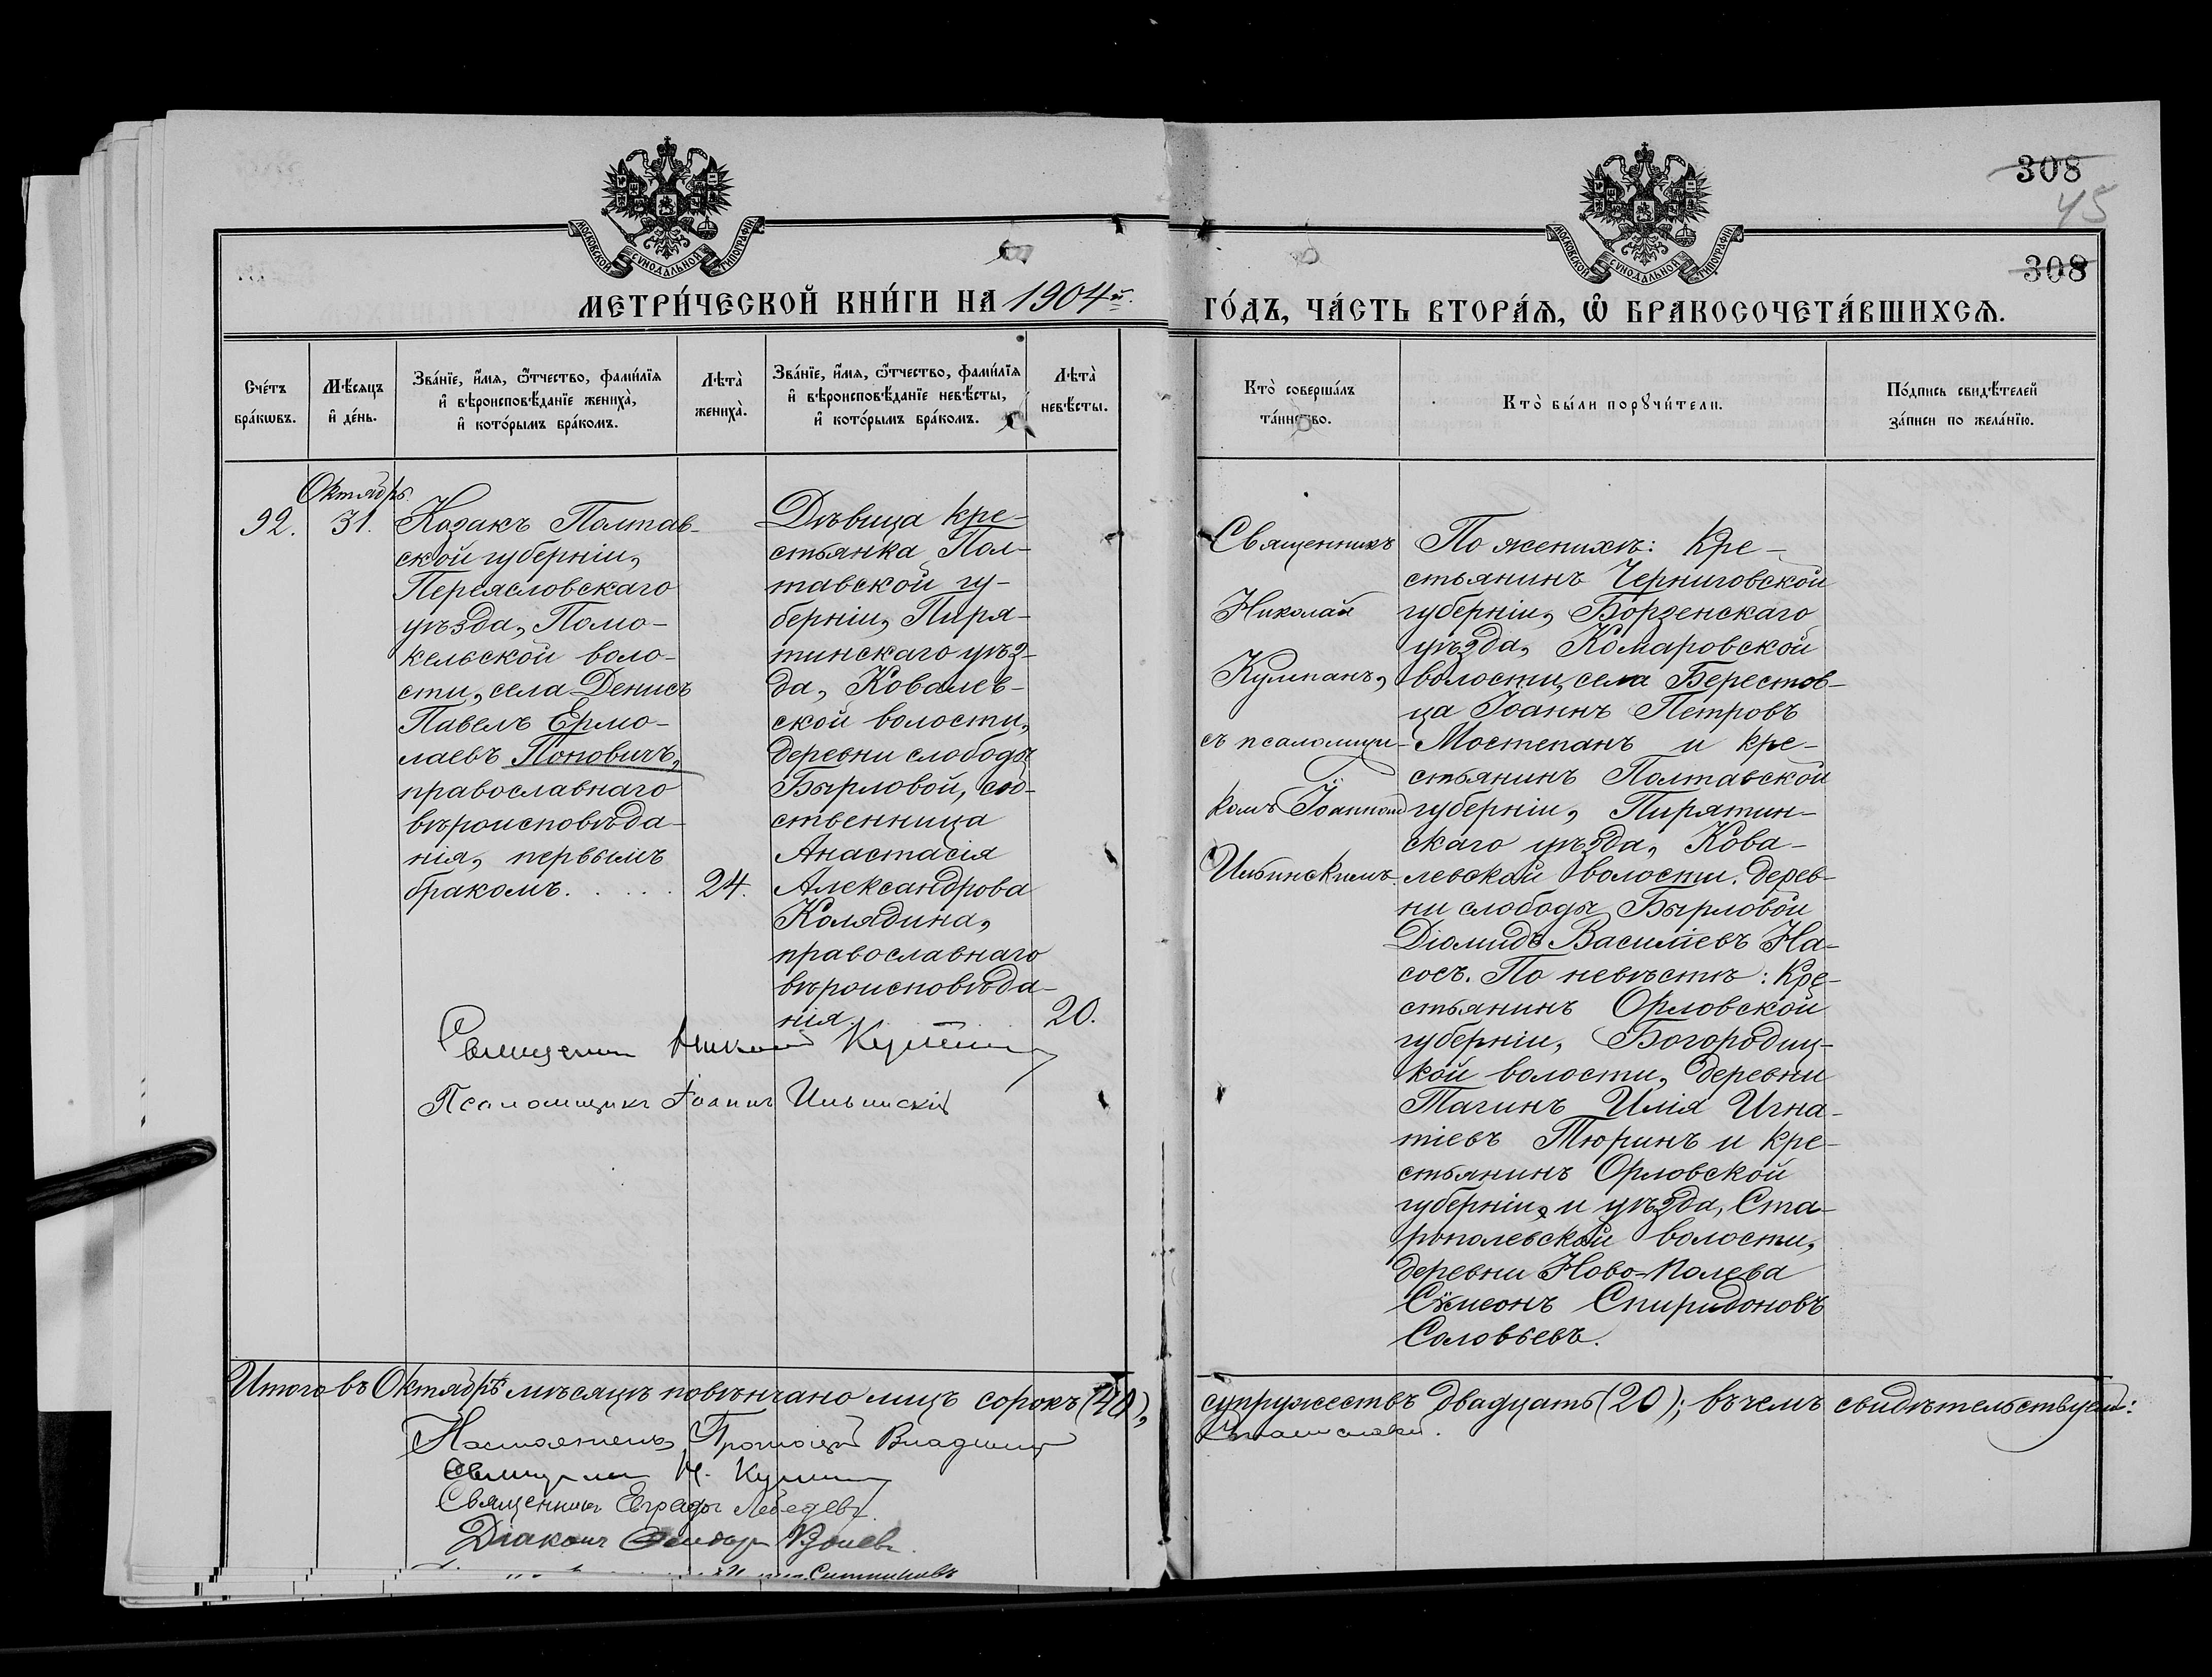 308
45
308
МОСКОВСКОЙ СѴНОДАЛЬНОЙ ТИПОГРАФІИ
МОСКОВСКОЙ СѴНОДАЛЬНОЙ ТИПОГРАФІИ
МЕТРИ́ЧЕСКОЙ КНИ́ГИ НА 1904й.
ГО́ДЪ, ЧА́СТЬ ВТОРА́Ѧ, Ѽ БРАКОСОЧЕТА́ВШИХСѦ.
Сче́тъ
бра́кѡвъ.
Мѣ́сяцъ
и҆ де́нь.
Зва́нїе, и҆́мѧ, ѻ҆́тчество, фами́лїѧ
и҆ вѣроисповѣ́данїе жениха̀,
и҆ кото́рымъ бра́комъ.
Лѣта̀
жениха̀.
Зва́нїе, и҆́мѧ, ѻ҆́тчество, фами́лїѧ
и҆ вѣроисповѣ́данїе невѣ́сты,
и҆ кото́рымъ бра́комъ.
Лѣта̀
невѣ́сты.
Кто̀ соверша́лъ
та́инство.
Кто̀ бы́ли порꙋчи́тели.
По́дпись свидѣ́телей
за́писи по жела́нїю.
Октябрь.
92.
31.
Козакъ Полтав-
ской губерніи,
Переясловскаго
уѣзда, Помо-
кельской воло-
сти, села Денисъ
Павелъ Ермо-
лаевъ Поповичъ,
православнаго
вѣроисповѣда-
нія, первымъ
бракомъ. . . . .
24.
Дѣвица кре-
стьянка Пол-
тавской гу-
берніи, Пиря-
тинскаго уѣз-
да, Ковалев-
ской волости,
деревни слободы
Бырловой, соб-
ственница
Анастасія
Александрова
Колядина,
православнаго
вѣроисповѣда-
нія.
20.
Священникъ
Николай
Кулпанъ,
съ псаломщи-
комъ Іоанномъ
Ильинскимъ.
По женихѣ: Кре-
стьянинъ Черниговской
губерніи, Борзенскаго
уѣзда, Комаровской
волости, села Берестов-
ца Іоаннъ Петровъ
Мостепанъ и кре-
стьянинъ Полтавской
губерніи, Пирятин-
скаго уѣзда, Кова-
левской волости. дерев-
ни слободы Бырловой
Діомидъ Василіевъ На-
сосъ. По невѣстѣ: Кре-
стьянинъ Орловской
губерніи, Богородиц-
кой волости, деревни
Тагинъ Илія Игна-
тіевъ Тюринъ и кре-
стьянинъ Орловской
губерніи, и уѣзда, Ста-
рополевской волости,
деревни Ново-Полева
Сѵмеонъ Спиридоновъ
Соловьевъ.
Священникъ Николай
Псаломщикъ Іоаннъ Ильинскій
Итого въ Октябрѣ мѣсяцѣ повѣнчано лицъ сорокъ (40),
супружествъ двадцать (20); въ чемъ свидѣтельствуемъ:
Настоятель, Протоіерей Владиміръ
Священникъ Н.
Священникъ Евграфъ Лебедевъ.
Діаконъ
Ситниковъ